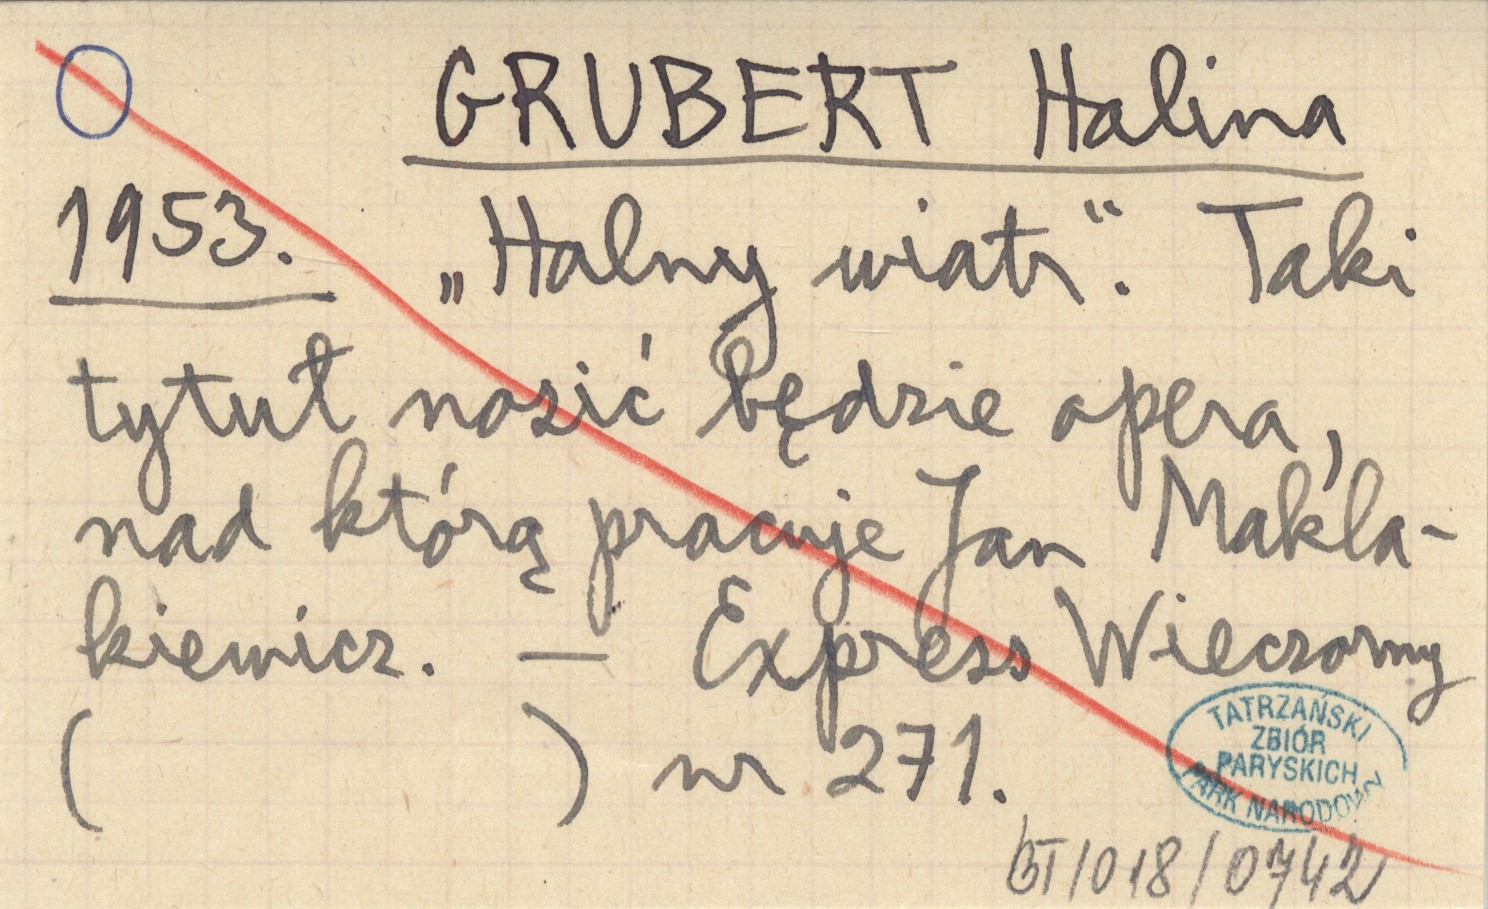 GRUBERT Halina
1953. „Halny wiatr“. Taki
tytuł nosić będzie opera,
nad którą pracuje Jan Makla-
kiewicz. — Express Wieczorny
( ) nr 271.
TATRZAŃSKI
ZBIÓR
PARYSKICH
PARK NARODOWY
BT/018/0742